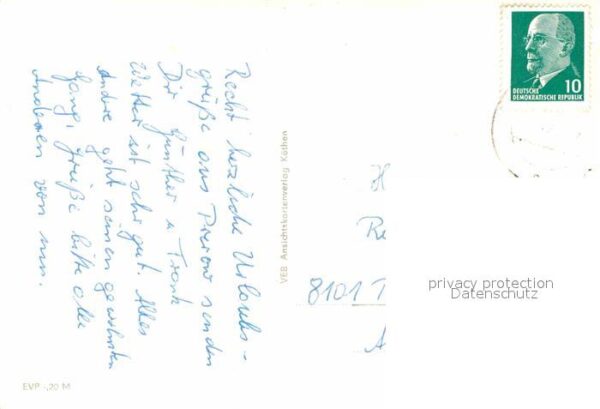 Recht herzliche Urlaubs-
grüße aus Prerow senden
Dir Günther u.
Wetter ist sehr gut. Alles
Andere geht seinen gewohnten
Gang, grüße bitte alle
Anderen von uns.
VEB Ansichtskartenverlag Köthen
EVP -,20 M
10
DEUTSCHE
DEMOKRATISCHE REPUBLIK
H
Re
8101 T
A
privacy protection
Datenschutz